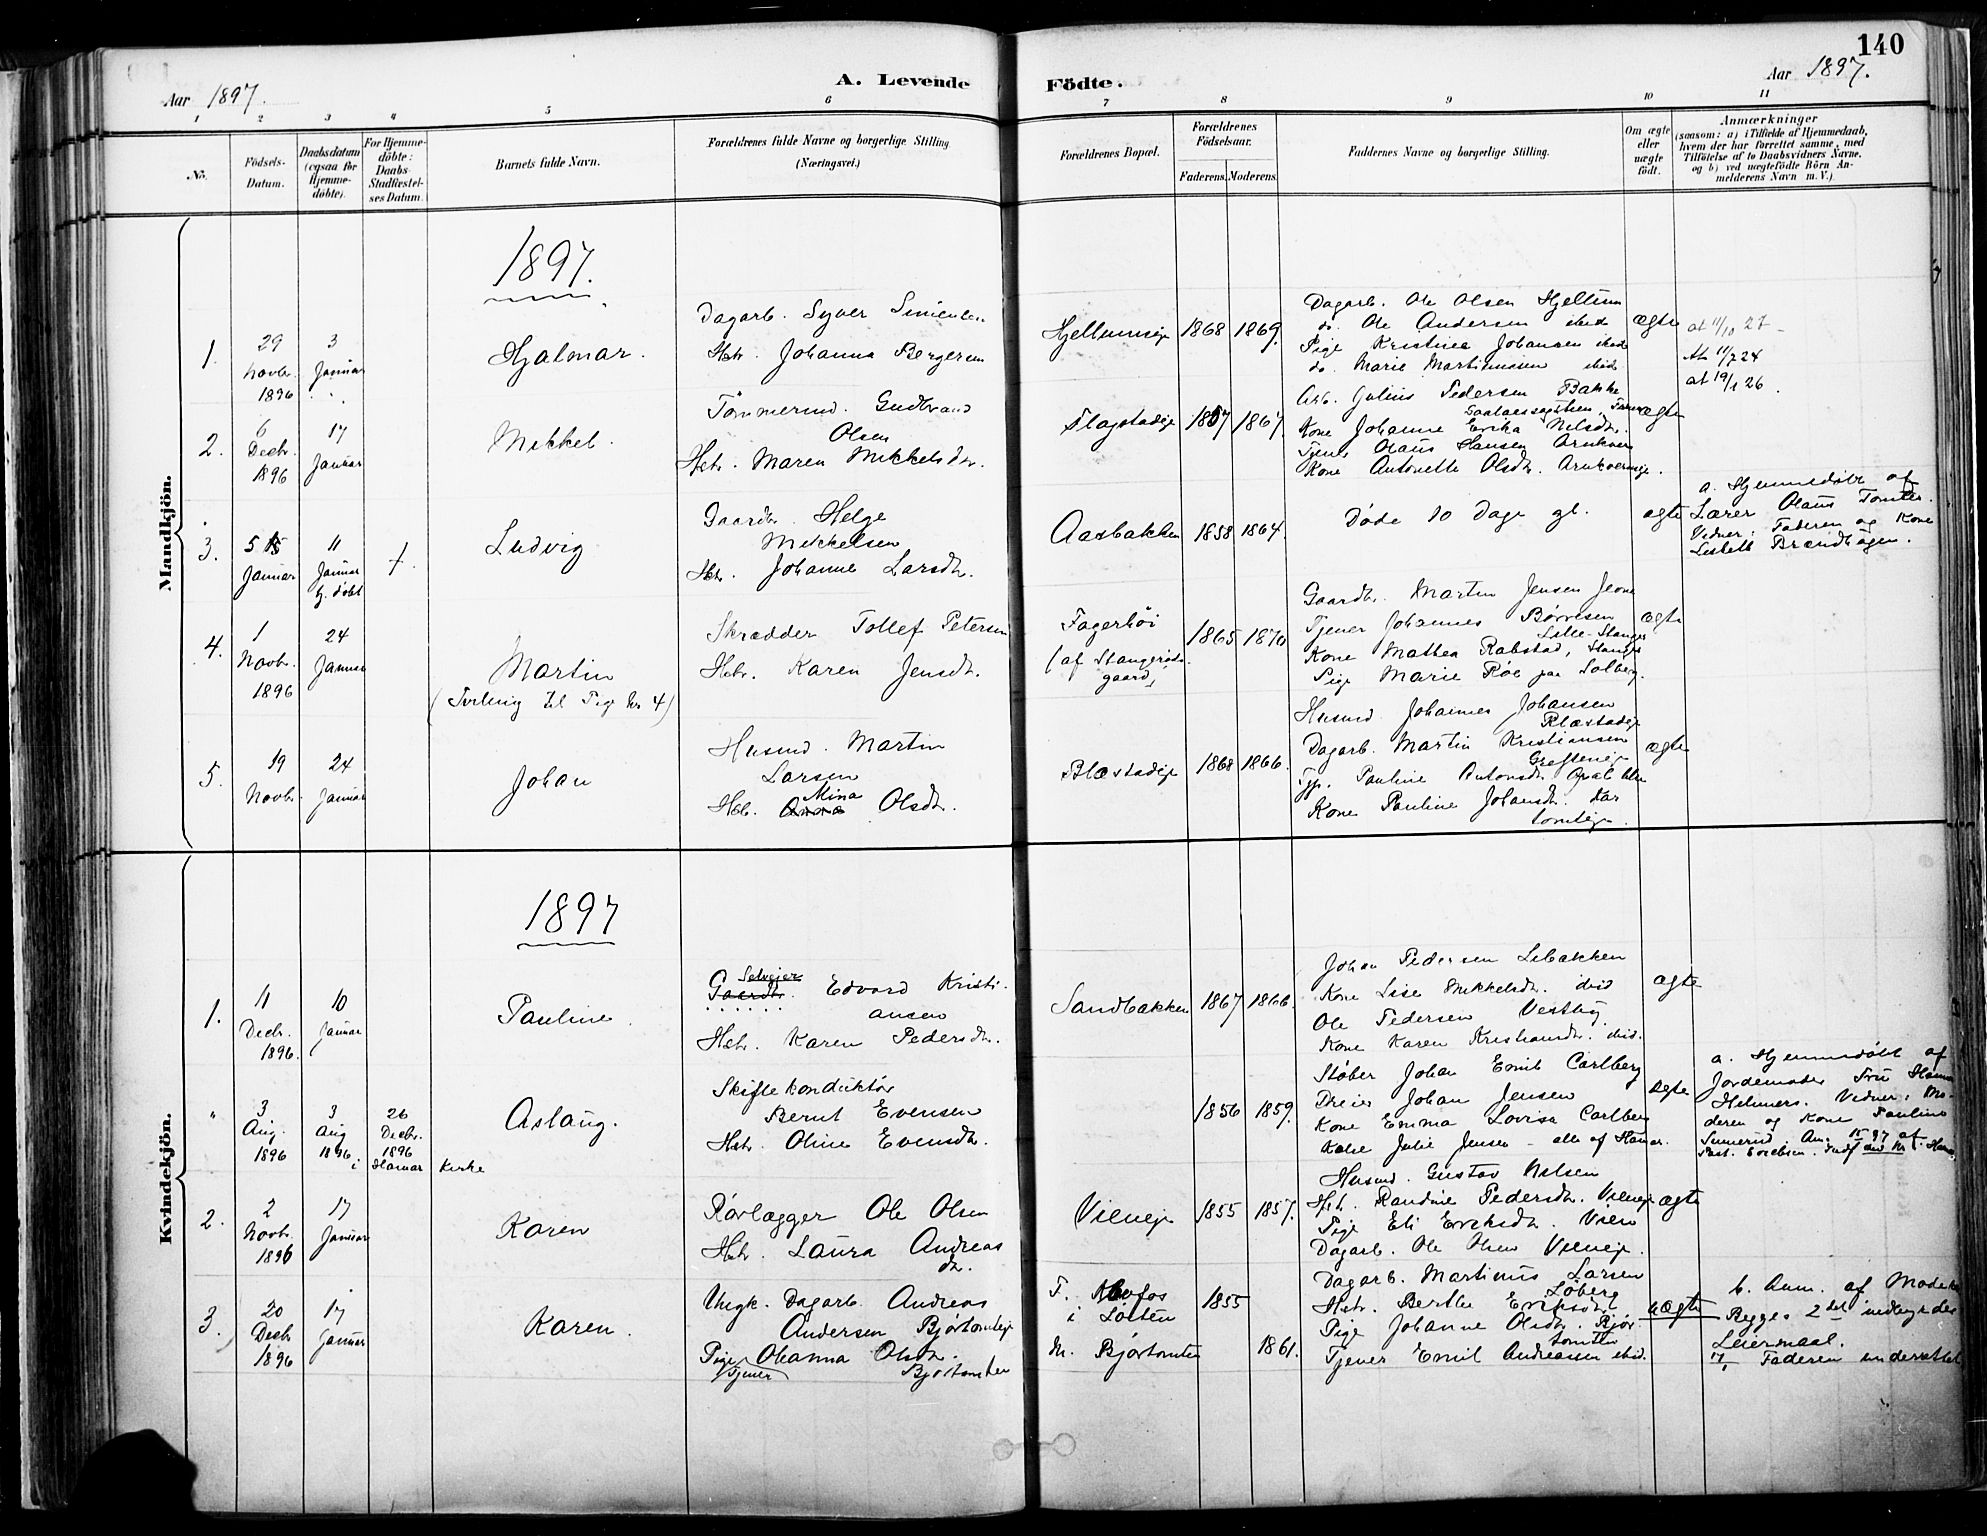 140
Aar 1897.
A. Levende
Födte.
Aar 1897.
1 2 3 4 5 6 7 8 9 10 11
No.
Födsels-
Datum.
Daabsdatum
(ogsaa for
Hjemme-
döbte).
For Hjemme-
döbte:
Daabs-
Stadfæstel-
ses Datum.
Barnets fulde Navn.
Forældrenes fulde Navne og borgerlige Stilling
(Næringsvei.)
Forældrenes Bopæl.
Forældrenes
Födselsaar.
Faderens. Moderens.
Faddernes Navne og borgerlige Stilling.
Om ægte
eller
uægte
födt.
Anmærkninger
(saasom: a) i Tilfælde af Hjemmedaab,
hvem der har forrettet samme, med
Tilföielse af to Daabsvidners Navne,
og b) ved uægtefödte Börn An-
melderens Navn m. V.).
Mandkjön.
1897.
1.
29
Novbr.
1896
3
Januar
Hjalmar.
Dagarb. Syver Simensen
Hstr. Johanna Bergersen
Hjellumeie
1868
1869.
Dagarb. Ole Olsen Hjellum
do. Ole Andersen ibid
Pige Kristine Johansen ibid
do. Marie Martinusen ibid.
ægte
at 11/10 27
Att 11/7 24
at 19/1 26.
2.
6
Decbr.
1896
17
Januar
Mikkel.
Tömmermd. Gudbrand
Olsen
Hstr. Maren Mikkelsdtr.
Flagstadeie
1857
1867.
Arb. Julius Pedersen Bakke
Kone Johanne Erika Nilsdtr.
Tjener Olaus Hansen Arnkvern
Kone Antonette Olsdtr. Arnkverneie.
ægte
3.
5
Januar
11
Januar
hj. döbt
†.
Ludvig
Gaardbr. Helge
Mikkelsen
Hstr. Johanne Larsdtr.
Aasbakken
1858
1864.
Döde 10 Dage gl.
ægte
a. Hjemmedöbt af
Lærer Olaus Tomter.
Vidner: Faderen og Kone
Lisbeth Brændhagen.
4.
1
Novbr.
1896
24
Januar
Martin
(Tvilling til Pige No 4)
Skrædder Tollef Petersen
Hstr. Karen Jensdtr.
Fagerhöi
(af Stangerids-
gaard)
1865
1870
Gaardbr. Martin Jensen Jevne
Tjener Johannes Börresen
Lille-Stange
Kone Mathea Rabstad, Stange
Pige Marie Röe paa Solberg.
ægte
5.
19
Novbr.
24
Januar
Johan
Husmd. Martin
Larsen
Hstr. Mina Olsdtr.
Blæstadeie
1868
1866.
Husmd. Johannes Johansen
Blæstadeie
Dagarb. Martin Kristiansen
Grefteneie
Tjp. Pauline Antonsdtr.
Kone Pauline Johansdtr. Kar
tomteie.
ægte
Kvindekjön.
1897
1.
11
Decbr.
1896.
10
Januar
Pauline
Selveier
Gaardbr. Edvard Kristi-
ansen
Hstr. Karen Pedersdtr.
Sandbakken
1867
1866.
Johan Pedersen Libakken
Kone Lise Mikkelsdtr. ibid
Ole Pedersen Vestby
Kone Karen Kristiansdtr. ibid.
ægte
"
3
Aug.
1896
3
Aug
1896
26
Decbr.
1896
i Hamar Kirke
Aslaug.
Skiftekonduktör
Bernt Evensen
Hstr. Oline Evensdtr.
1856
1859.
Stöber Johan Emil Carlberg
Dreier Johan Jensen
Kone Emma Lovisa Carlberg
Kone Julie Jensen - alle af Hamar.
ægte
a. Hjemmedöbt af
Jordemoder Fru Hanna
Helmers. Vidner: Mo-
deren og Kone Pauline
2.
2
Novbr.
1896
17
Januar
Karen
Rörlægger Ole Olsen
Hstr. Laura Andreas
dtr.
Vieneie
1855
1857.
Husmd. Gustav Nilsen
Hstr. Randine Pedersdtr. Vieneie
Pige Eli Eriksdtr. Vien
Dagarb. Ole Olsen Vieneie.
ægte
3.
20
Decbr.
1896
17
Januar
Karen.
Ungk. Dagarb. Andreas
Andersen Björtomteie
Pige Ohanna Olsdtr.
Tjener
Björtomten
F.
i Löiten
M. Björtomten
1855
1861.
Dagarb. Martinus Larsen
Löberg
Hstr. Berthe Eriksdtr.
Pige Johanne Olsdtr. Björ-
tomten
Tjener Emil Andreassen ibid.
uægte
b. Anm. af Moderen
Begges 2det indbyrdes
Leiermaal.
Faderen underrettet